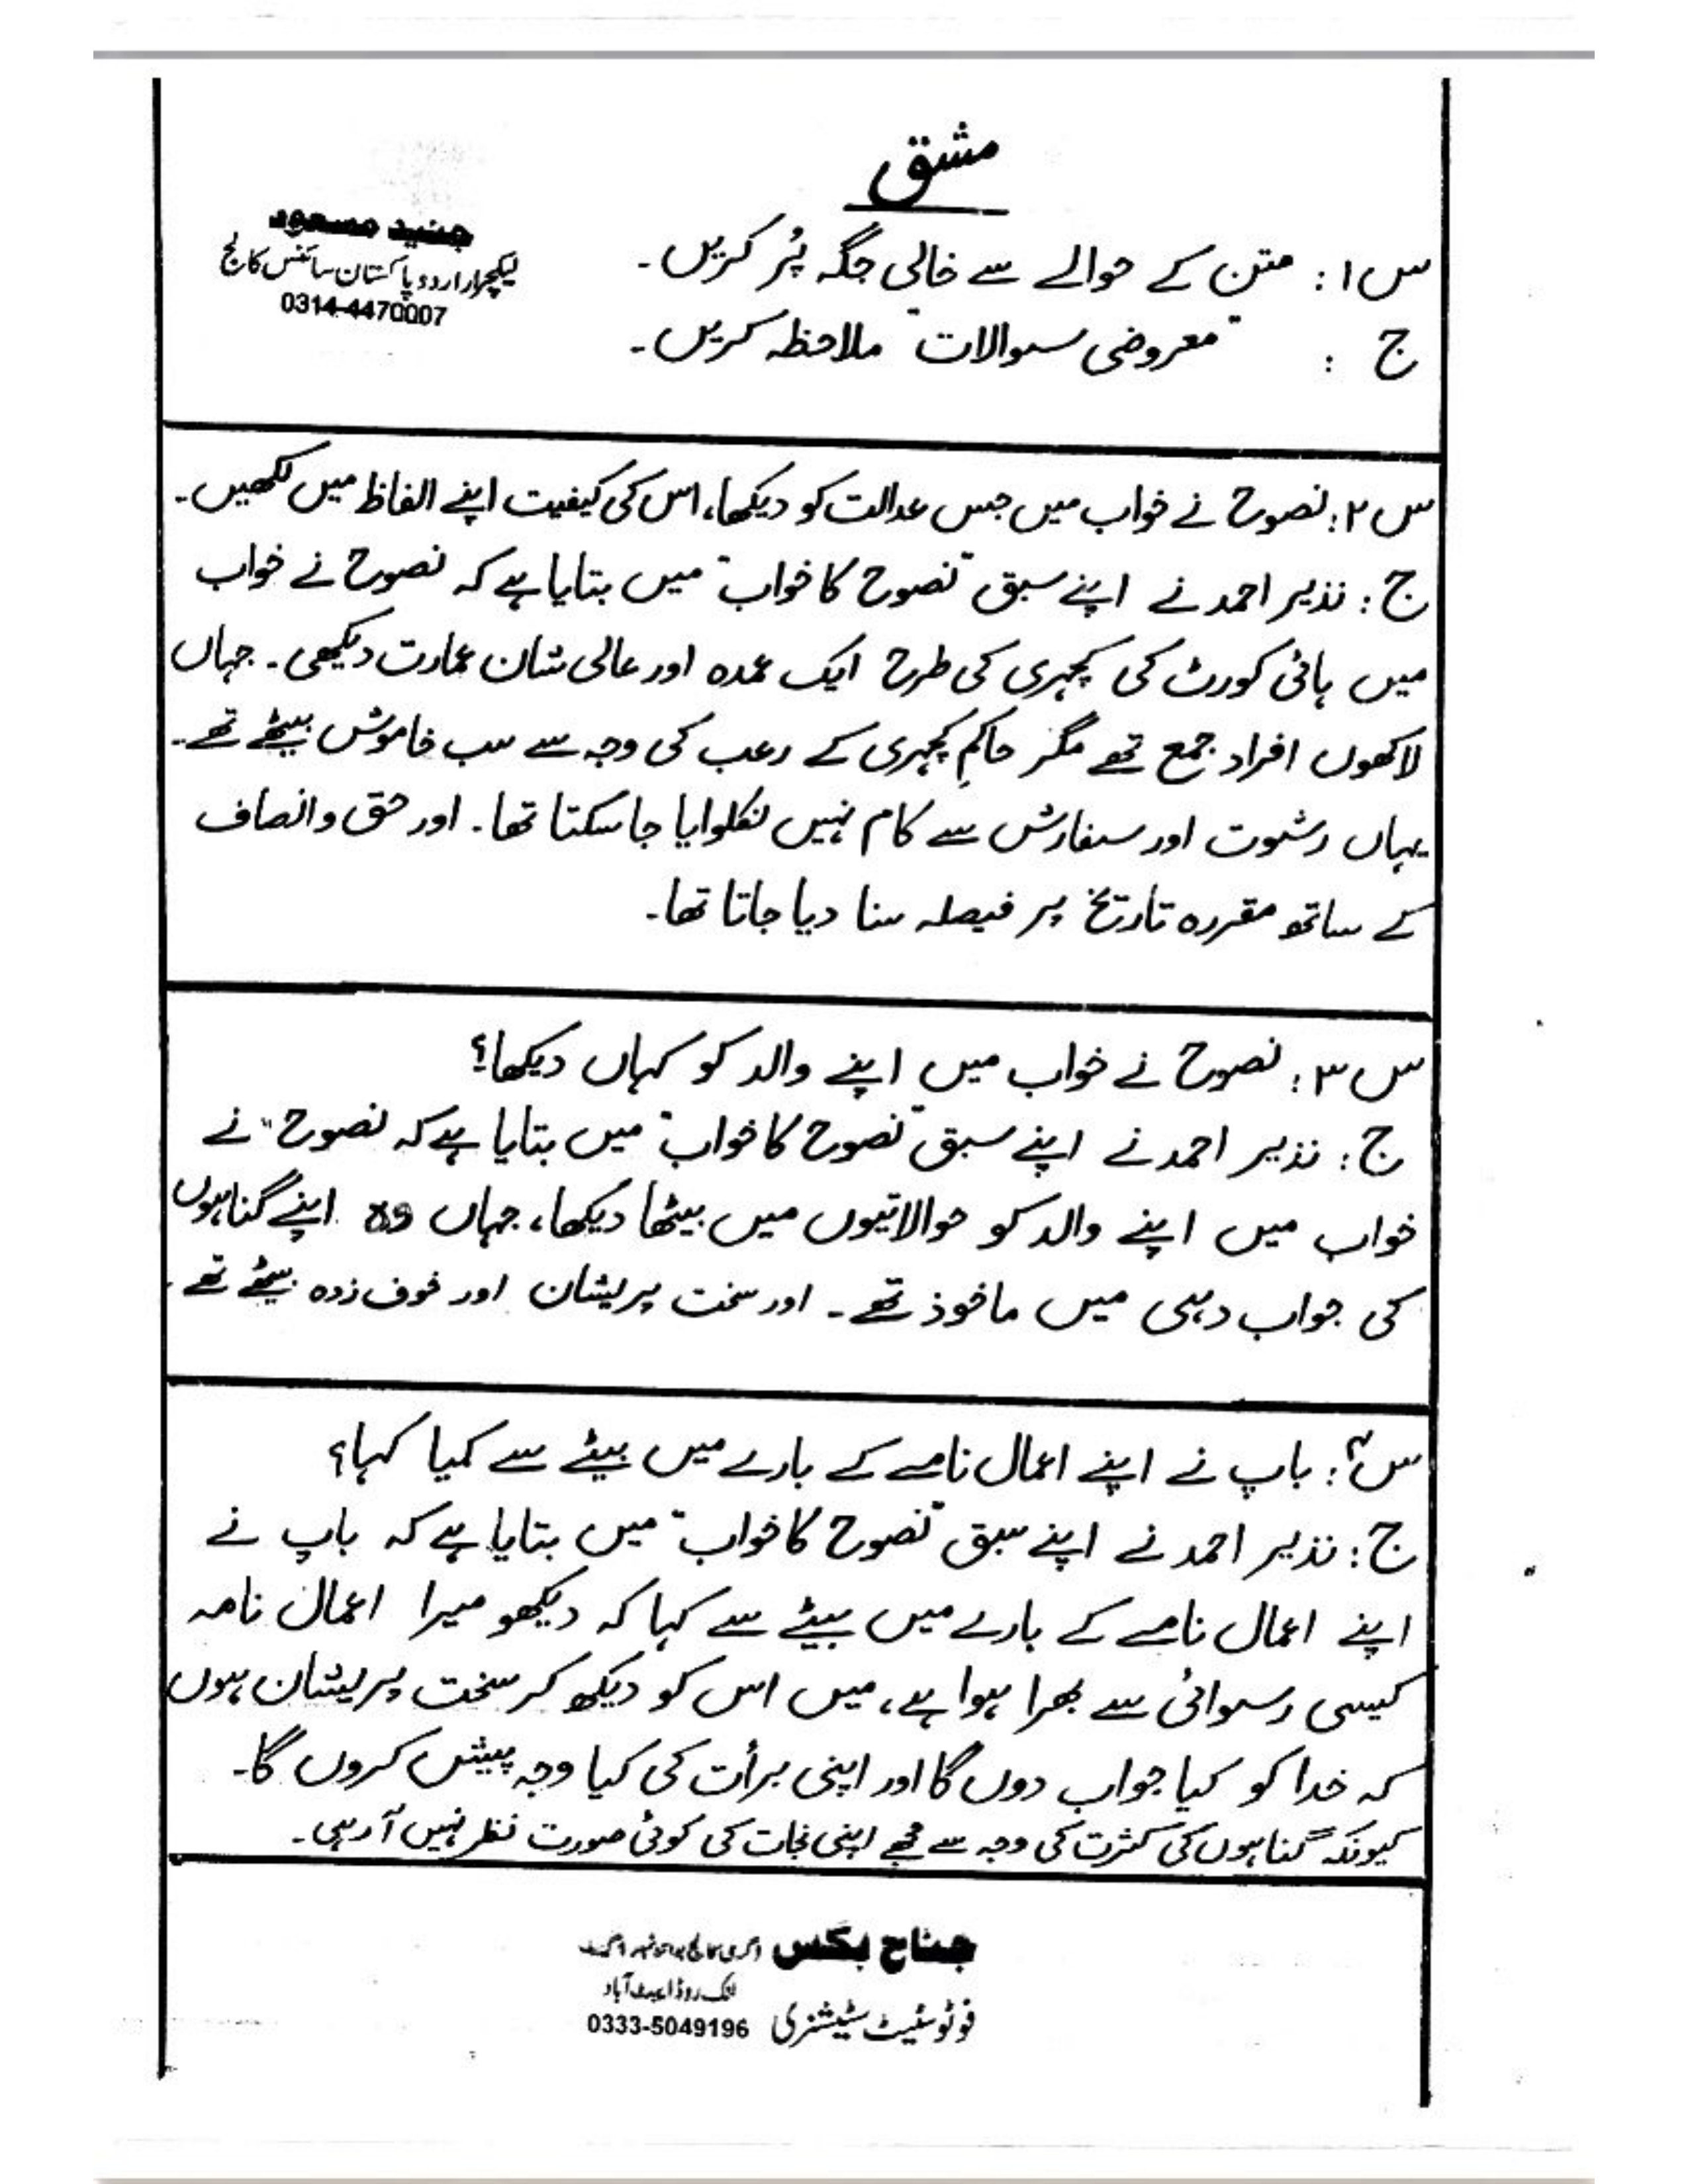 مشق
جنید مسعود
لیکچرار اردو پاکستان سائنس کالج
0314-4470007
س۱: متن کے حوالے سے خالی جگہ پُر کریں۔
ج: "معروضی سوالات" ملاحظہ کریں۔
س۲: نصوح نے خواب میں جس عدالت کو دیکھا، اس کی کیفیت اپنے الفاظ میں لکھیں۔
ج: نذیر احمد نے اپنے سبق "نصوح کا خواب" میں بتایا ہے کہ نصوح نے خواب
میں ہائی کورٹ کی کچہری کی طرح ایک عمدہ اور عالی شان عمارت دیکھی۔ جہاں
لاکھوں افراد جمع تھے مگر حاکمِ کچہری کے رعب کی وجہ سے سب خاموش بیٹھے تھے۔
یہاں رشوت اور سفارش سے کام نہیں نکلوایا جا سکتا تھا۔ اور حق و انصاف
کے ساتھ مقررہ تاریخ پر فیصلہ سنا دیا جاتا تھا۔
س۳: نصوح نے خواب میں اپنے والد کو کہاں دیکھا؟
ج: نذیر احمد نے اپنے سبق "نصوح کا خواب" میں بتایا ہے کہ نصوح" نے
خواب میں اپنے والد کو حوالاتیوں میں بیٹھا دیکھا، جہاں وہ اپنے گناہوں
کی جواب دہی میں ماخوذ تھے۔ اور سخت پریشان اور خوف زدہ بیٹھے تھے۔
س۴: باپ نے اپنے اعمال نامے کے بارے میں بیٹے سے کیا کہا؟
ج: نذیر احمد نے اپنے سبق "نصوح کا خواب" میں بتایا ہے کہ باپ نے
اپنے اعمال نامے کے بارے میں بیٹے سے کہا کہ دیکھو میرا اعمال نامہ
کیسی رسوائی سے بھرا ہوا ہے، میں اس کو دیکھ کر سخت پریشان ہوں
کہ خدا کو کیا جواب دوں گا اور اپنی برأت کی کیا وجہ پیش کروں گا۔
کیونکہ گناہوں کی کثرت کی وجہ سے مجھے اپنی نجات کی کوئی صورت نظر نہیں آ رہی۔
جناح بکس
لنک روڈ ایبٹ آباد
فوٹو سٹیٹ سٹیشنری 0333-5049196